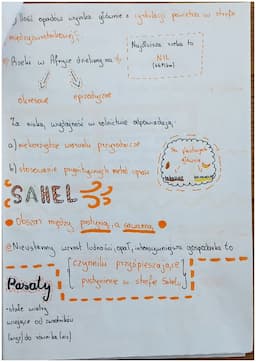 Ilość opadów wynika głównie z cyrkulacji powietrza w strefie
międzyzwrotnikowej;
Rzeki w Afryce dzielimy na:
Najdłuższa rzeka to
NIL
okresowe epizodyczne
Za niską wydajność w rolnictwie odpowiadają:
a) niekorzystne warunki przyrodnicze
b) stosowanie prymitywnych metod uprawy
SAHEL
Obszar między pustynią, a sawanną
Nieustanny wzrost ludności, opał, intensywniejsza gospodarka to
czynniki przyśpieszające
pustynnienie w strefie Sahelu
Pasaty
-stałe wiatry
wiejące od zwrotników
do równika